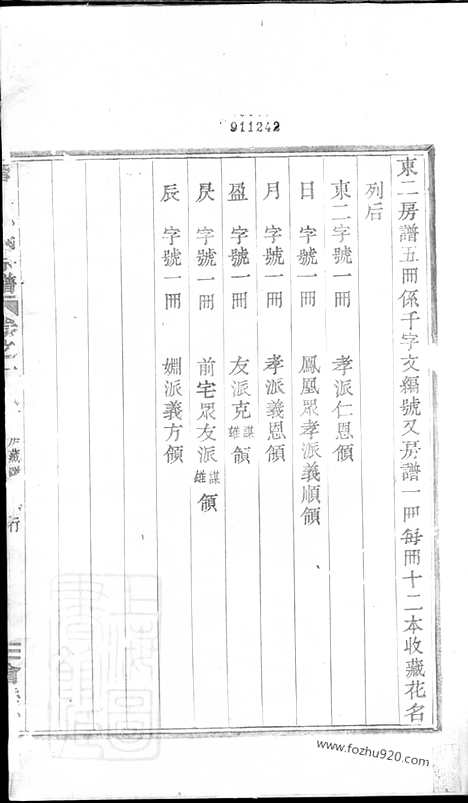 911242
東二房譜五冊係千字文編號又房譜一冊每冊十二本收藏花名
列后
東二字號一冊　孝派仁恩領
日　字號一冊　鳳凰眾孝派義順領
月　字號一冊　孝派義恩領
盈　字號一冊　友派克謀雄領
昃　字號一冊　前宅眾友派謀雄領
辰　字號一冊　嫺派義方領
宗譜
www.fozhu920.com